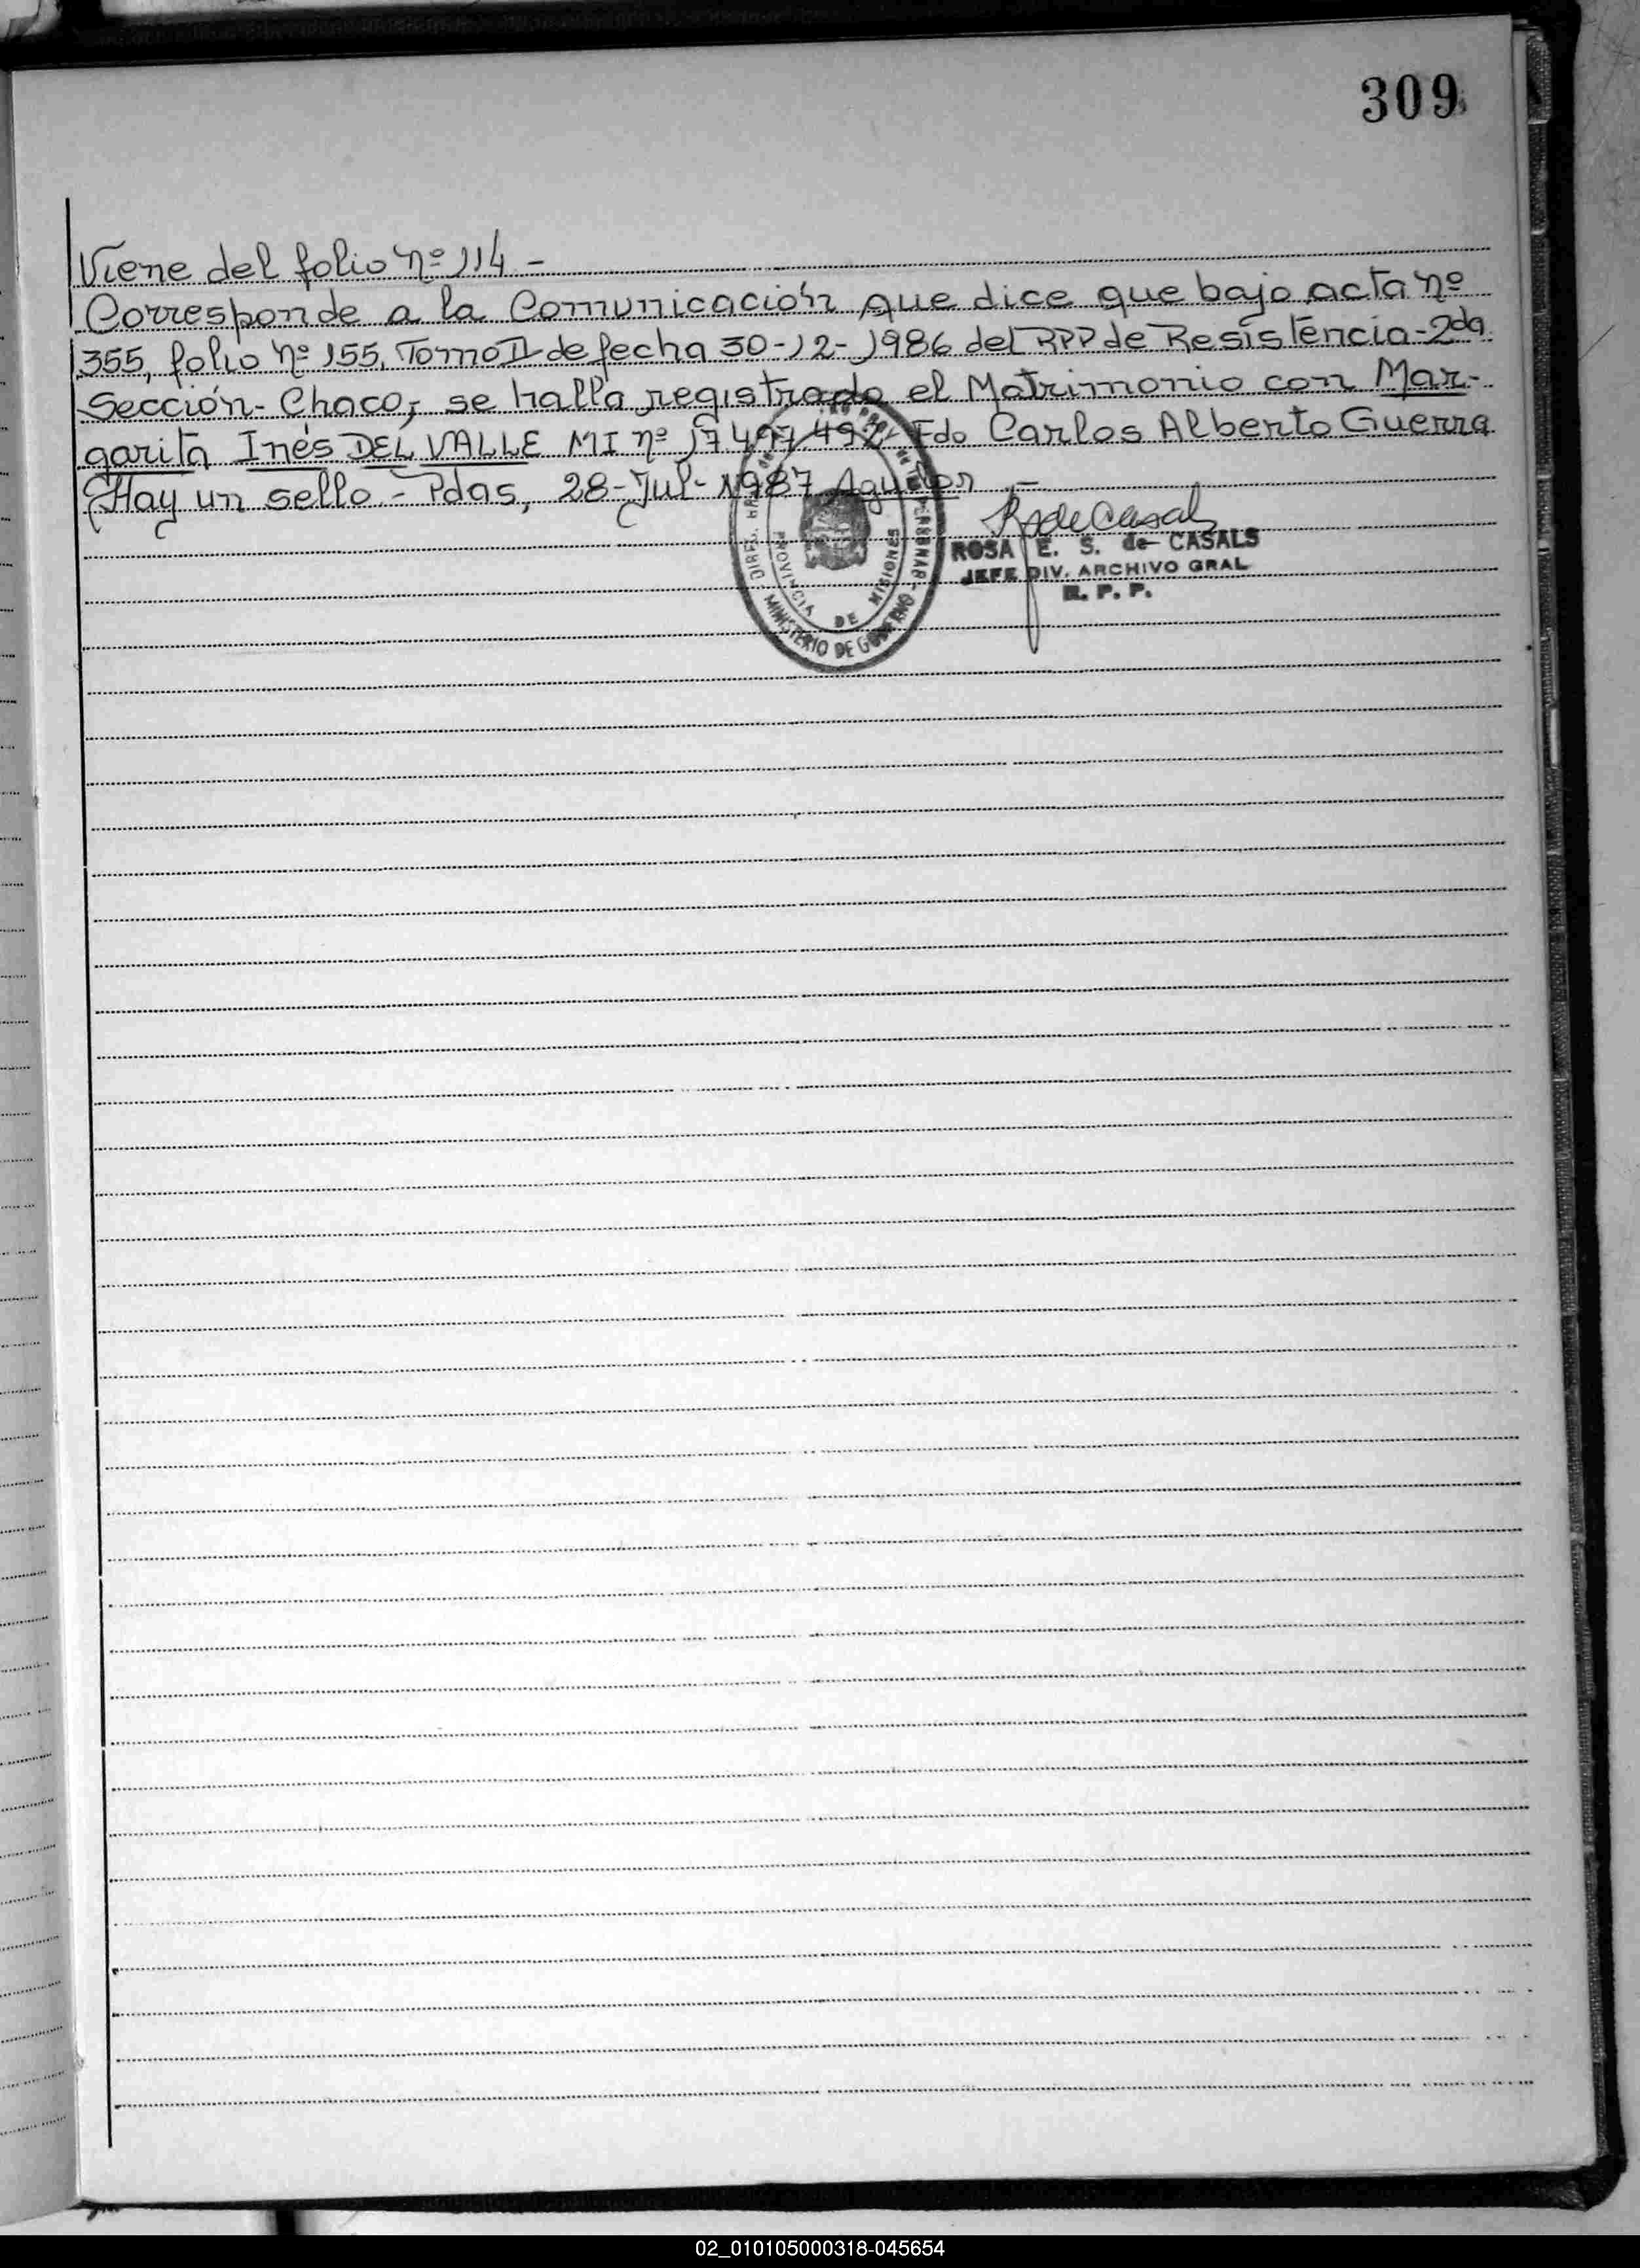 309
Viene del folio nº 114 -
Corresponde a la Comunicación que dice que bajo acta nº
355, folio nº 155, Tomo II de fecha 30-12-1986 del RPP de Resistencia-2da
Sección- Chaco, se halla registrado el Matrimonio con Mar-
garita Inés DEL VALLE MI nº 17.497.492- Fdo Carlos Alberto Guerra
Hay un sello.- Pdas, 28-Jul-1987
ROSA E. S. de CASALS
JEFE DIV. ARCHIVO GRAL
R. P. P.
PROVINCIA DE MISIONES
MINISTERIO DE GOBIERNO
02_010105000318-045654